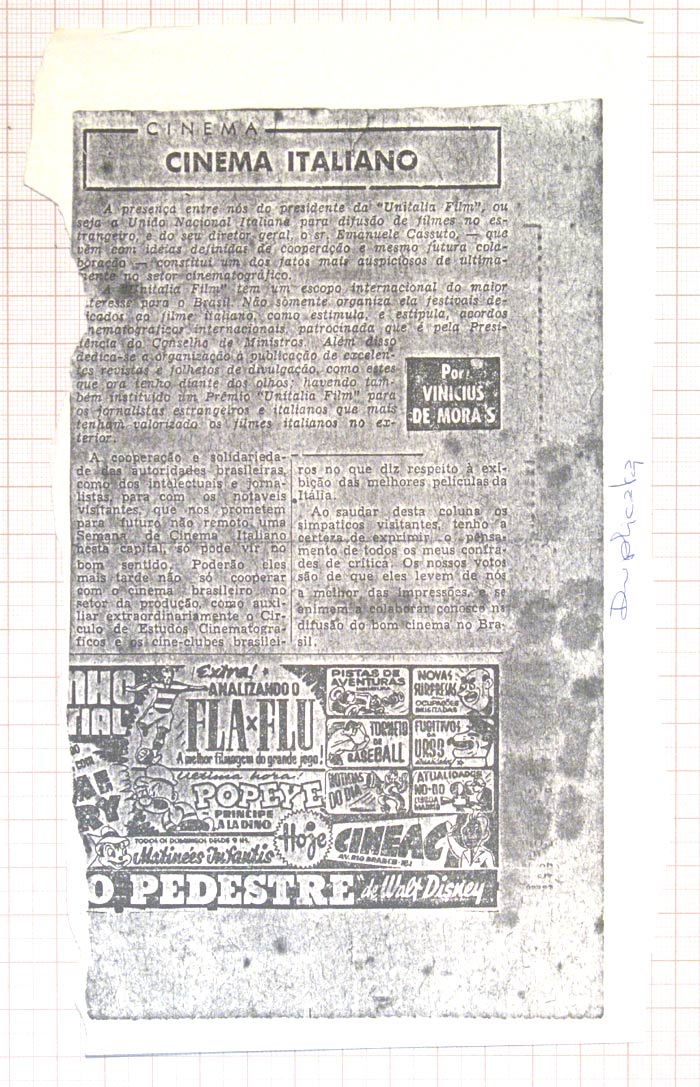 CINEMA
CINEMA ITALIANO
A presença entre nós do presidente da "Unitalia Film", ou
seja a União Nacional Italiana para difusão de filmes no es-
trangeiro, e do seu diretor geral, o sr. Emanuele Cassuto, — que
vêm com idéias definidas de cooperação e mesmo futura cola-
boração — constitui um dos fatos mais auspiciosos de ultima-
mente no setor cinematográfico.
A "Unitalia Film" tem um escopo internacional do maior
teresse para o Brasil. Não somente organiza ela festivais de-
icados ao filme italiano, como estimula, e estipula, acordos
nematográficos internacionais, patrocinada que é pela Presi-
dência do Conselho de Ministros. Além disso
dedica-se a organização à publicação de excelen-
tes revistas e folhetos de divulgação, como estes
que ora tenho diante dos olhos; havendo tam-
bém instituido um Prêmio "Unitalia Film" para
os jornalistas estrangeiros e italianos que mais
tenham valorizado os filmes italianos no ex-
terior.
Por
VINICIUS
DE MORA S
A cooperação e solidarieda-
de das autoridades brasileiras,
como dos intelectuais e jorna-
listas, para com os notaveis
visitantes, que nos prometem
para futuro não remoto uma
Semana de Cinema Italiano
nesta capital, só pode vir no
bom sentido. Poderão eles
mais tarde não só cooperar
com o cinema brasileiro no
setor da produção, como auxi-
liar extraordinariamente o Cir-
culo de Estudos Cinematográ-
ficos e os cine-clubes brasilei-
ros no que diz respeito à exi-
bição das melhores peliculas da
Itália.
Ao saudar desta coluna os
simpaticos visitantes, tenho a
certeza de exprimir o pensa-
mento de todos os meus confra-
des de crítica. Os nossos votos
são de que eles levem de nós
a melhor das impressões, e se
animem a colaborar conosco na
difusão do bom cinema no Bra-
sil.
Duplicata
Extra!
ANALIZANDO O
FLA x FLU
A melhor filmagem do grande jogo!
PISTAS DE
AVENTURAS
NOVAS
SURPRESAS
OCUPAÇÕES
TORNEIO
DE BASEBALL
FUGITIVOS
DA URSS
NOTICIAS
DO DIA
ATUALIDADES
NO-DO
Ultima hora!
POPEYE
PRINCIPE
A LA DINO
TODOS OS DOMINGOS DESDE 9 HS.
Matinées Infantis
Hoje
CINEAC
AV. RIO BRANCO-181
O PEDESTRE de Walt Disney